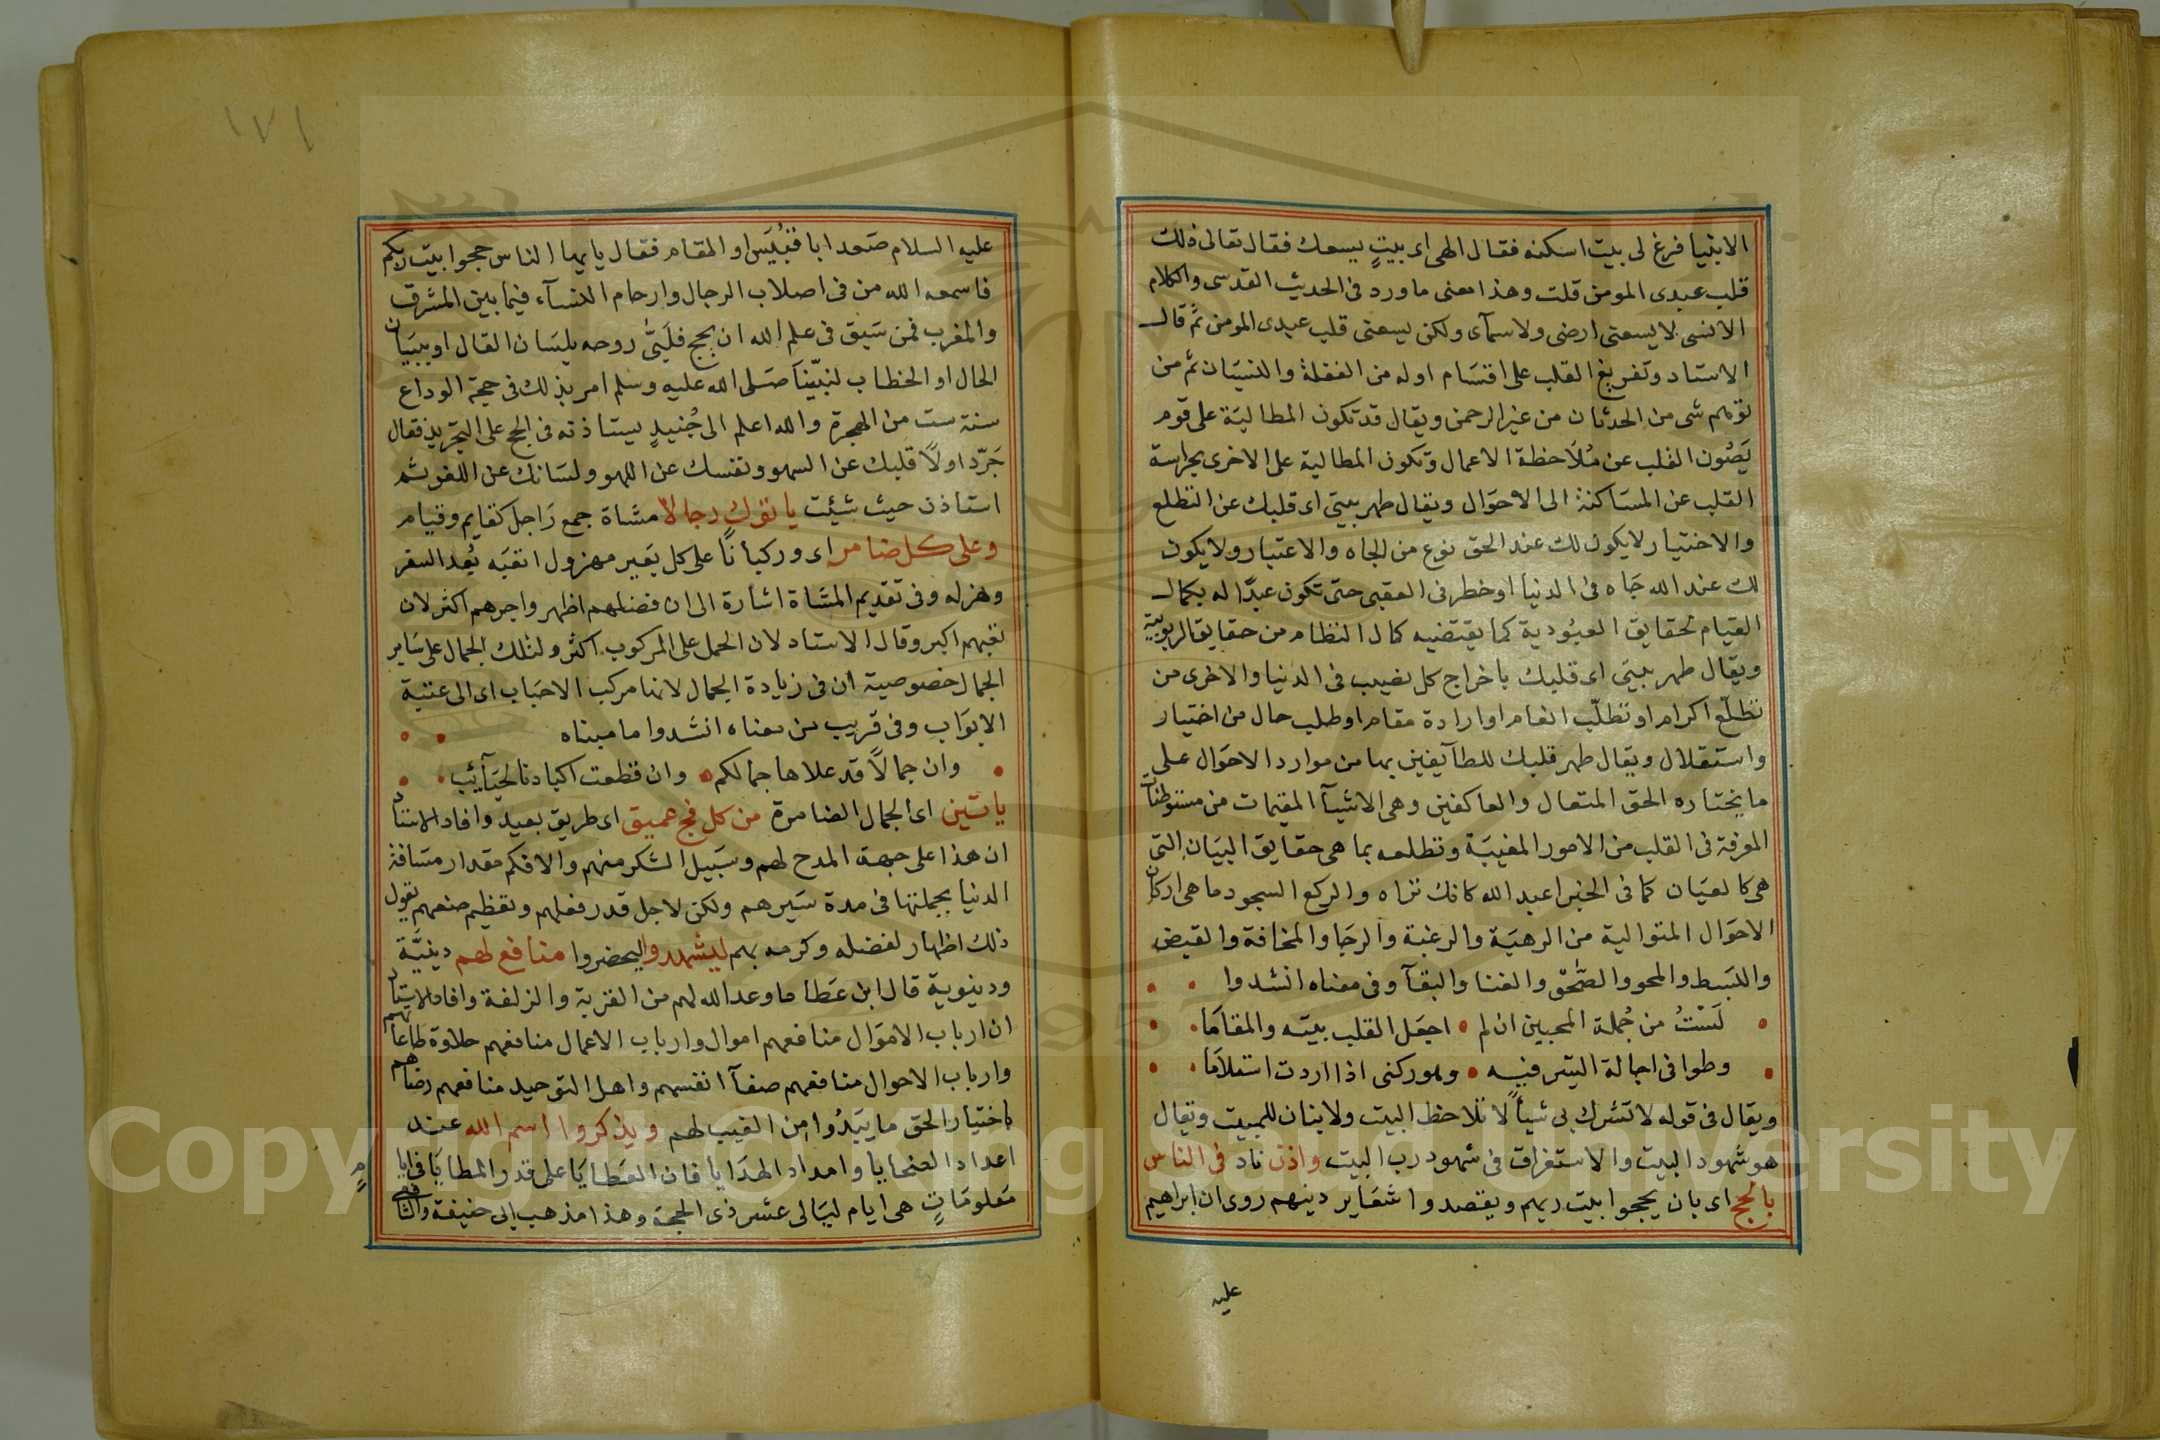 الانبيا فرغ لى بيت اسكنه فقال الهى اى بيتٍ يسعك فقال تعالى ذلك
قلب عبدى المومن قلت وهذا معنى ما ورد فى الحديث القدسى والكلام
الانسى لا يسعنى ارضى ولا سمآى ولكن يسعنى قلب عبدى المومن ثم قال
الاستاد وتفريغ القلب على اقسام اوله من الغفلة والنسيان ثم من
توهم شى من الحدثان من غير الرحمن ويقال قد تكون المطالبة على قوم
بصون القلب عن ملاحظة الاعمال وتكون المطالبة على الاخرى بحراسة
القلب عن المساكنة الى الاحوال ويقال طهر بيتى اى قلبك عن التطلع
والاختيار لا يكون لك عند الحق نوع من الجاه والاعتبار ولا يكون
لك عند الله جاه فى الدنيا او خطر فى العقبى حتى تكون عبدًا له بكمال
القيام لحقايق العبودية كما يقتضيه كمال النظام من حقايق الربوبية
ويقال طهر بيتى اى قلبك باخراج كل نصيب فى الدنيا والاخرى من
تطلع اكرام او تطلب انعام او ارادة مقام او طلب حال من اختيار
واستقلال ويقال طهر قلبك للطآيفين بها من موارد الاحوال على
ما يختاره الحق المتعال والعاكفين وهى الاشيآ المقيمات من مستوطنات
المعرفة فى القلب من الامور المغيبة وتطلعه بما هى حقايق البيان التى
هى كالعيان كما فى الخبر اعبد الله كانك تراه والركع السجود ما هى اركان
الاحوال المتوالية من الرهبة والرغبة والرجا والمخافة والقبض
والبسط والمحو والصحو والفنا والبقآ وفى معناه انشدوا
لَسْتُ من جُملة المحبين ان لم اجعل القلب بيته والمقاما
وطوافى اجالة السر فيه وهو ركنى اذا اردت استلاما
ويقال فى قوله لا تشرك بى شيأً لا تلاحظ البيت ولا بنان للبيت وتقال
هو شهود البيت والاستغراق فى شهود رب البيت واذن ناد فى الناس
بالحج اى بان يحجوا بيت ربهم ويقصدوا شعاير دينهم روى ان ابراهيم
عليه
١٧١
عليه السلام صعد ابا قبيس او المقام فقال يايها الناس حجوا بيت ربكم
فاسمعه الله من فى اصلاب الرجال وارحام النسآء فيما بين المشرق
والمغرب فمن سبق فى علم الله ان يحج فلبى روحه بلسان القال او ببيان
الحال او الخطاب لنبينا صلى الله عليه وسلم امر بذلك فى حجة الوداع
سنة ست من الهجرة والله اعلم الى جُنيدٍ يستاذنه فى الحج على التجريد فقال
جَرّد اولًا قلبك عن السهو ونفسك عن اللهو ولسانك عن اللغو ثم
استاذن حيث شئت ياتوك رجالا مشاة جمع راجل كقايم وقيام
وعلى كل ضامر اى وركبانًا على كل بعير مهزول اتعبه بُعد السفر
وهزله وفى تقديم المشاة اشارة الى ان فضلهم اظهر واجرهم اكثر لان
تعبهم اكبر وقال الاستاد لان الحمل على المركوب اكثر ولتلك الجمال على ساير
الجمال خصوصية ان فى زيادة الجمال لانها مركب الاحباب اى الى عتبة
الابواب وفى قريب من معناه انشدوا ما مبناه
وان جمالًا قد علاها جمالكم وان قطعت اكبادنا لحبآئب
ياتين اى الجمال الضامرة من كل فج عميق اى طريق بعيد وافاد الاستاد
ان هذا على جهة المدح لهم وسبيل الشكر منهم والا فكم مقدار مسافة
الدنيا بجملتها فى مدة سيرهم ولكن لاجل قدر فعلهم وتعظيم صنعهم يقول
ذلك اظهار لفضله وكرمه بهم ليشهدوا ليحضروا منافع لهم دينيَّة
ودنيوية قال ابن عطا ما وعد الله لهم من القربة والزلفة وافاد الاستاد
ان ارباب الاموال منافعهم اموال وارباب الاعمال منافعهم حلاوة طاعاتهم
وارباب الاحوال منافعهم صفآ انفسهم واهل التوحيد منافعهم رضاهم
باختيار الحق ما يبدوا من الغيب لهم ويذكروا اسم الله عند
اعداد الضحايا وامداد الهدايا فان العطايا على قدر المطايا فى ايام
معلوماتٍ هى ايام ليالى عشر ذى الحجة وهذا مذهب ابى حنيفة والشافعى
Copyright © King Saud University
1957